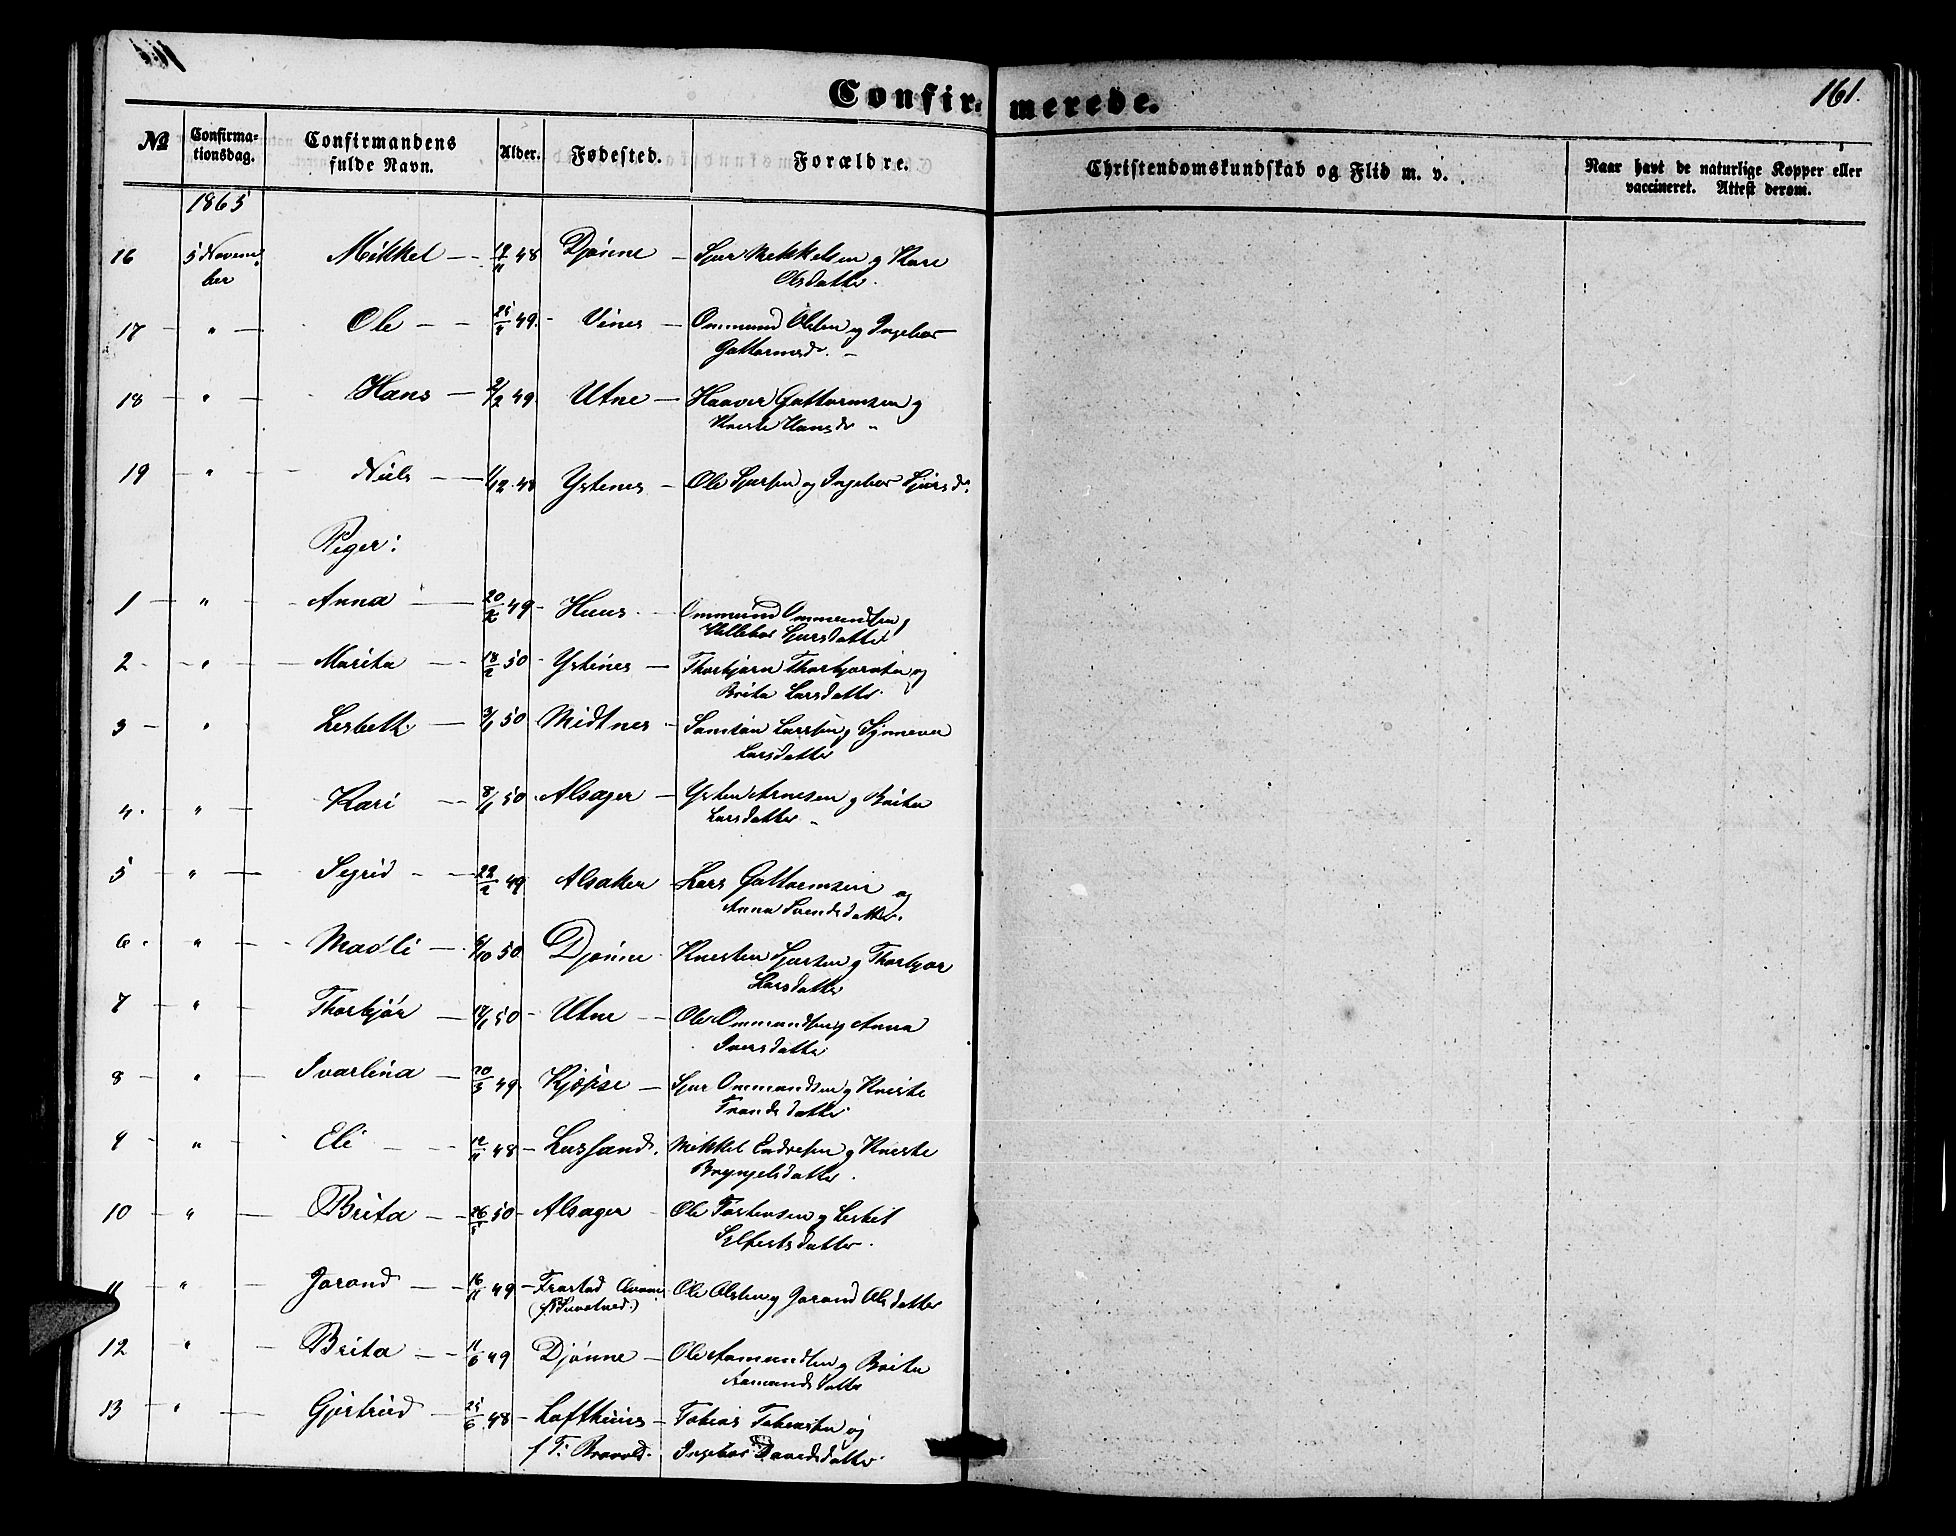 Confirmerede.
161.
№ Confirmationsdag. Confirmandens fulde Navn. Alder. Fødested. Forældre. Christendomskundskab og Flid m. v. Naar havt de naturlige Kopper eller vaccineret. Attest derom.
1865
16 5 Novem- Mikkel 48 Djønne Sjur Mikkelsen og Kari
ber Olsdatter.
17 " Ole 49. Vines Ommund Olsen og Ingebor
Guttormsd.
18 " Hans 2/2 49 Utne Haaver Guttormsen og
Hansd
19 " Niels 1/12 48 Ystenes Ole Sjursen og Ingebor Sjursd.
Piger:
1 " Anna 20/2 49 Huus Ommund Ommundsen og
Sjursdatter
2 " Marita 18/2 50 Ystines Thorbjørn Thorbjørnsen og
Brita Larsdatter.
3 " Lisbeth 3/1 50 Midtnes Samson Larssen og Synneva
Larsdatter
4. " Kari 50 Alsager Ysten Arnesen og Brita
Larsdatter
5 " Sigrid 22/2 49 Alsaker Lars Guttormsen og
Anna Svendsdatter.
6. " Madli 50 Djønne Knesten Sjursen og Thorbjor
Larsdatter
7 " Thorbjør 50 Utne Ole Ommundsen og Anna
Iversdatter
8 " Ivarlina 20/3 49. Kjepse Sjur Ommundsen og Kneske
Trondsdatter
9 " Eli 12/11 48 Lussand. Mikkel Endresen og Kneske
Bryngelsdatter.
10 " Brita 26/5 50 Alsager Ole Torstensen og Lisbet
Selfestsdatter.
11 " Jorond 16/11 49 Trostad
Ole Olsen og Jorond Olsdatter
12 " Brita 11/6 49 Djønne Ole Aamundsen og Brita
Aamundsdatter
13 " Gjertrud 25/6 48 Lofthuus Tobias Tobiassen og
f T. Bravold. Ingebor Davidsdatter